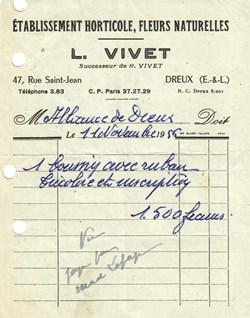 ÉTABLISSEMENT HORTICOLE, FLEURS NATURELLES
L. VIVET
Successeur de R. VIVET
47, Rue Saint-Jean DREUX (E.-&-L.)
Téléphone 3.83 C. P. Paris 37.27.29 R. C. Dreux
M Alliance de Dreux Doit
Le 11 Novembre 1956
1 bouquet avec ruban
tricolore et inscription
1.500 francs
Vu